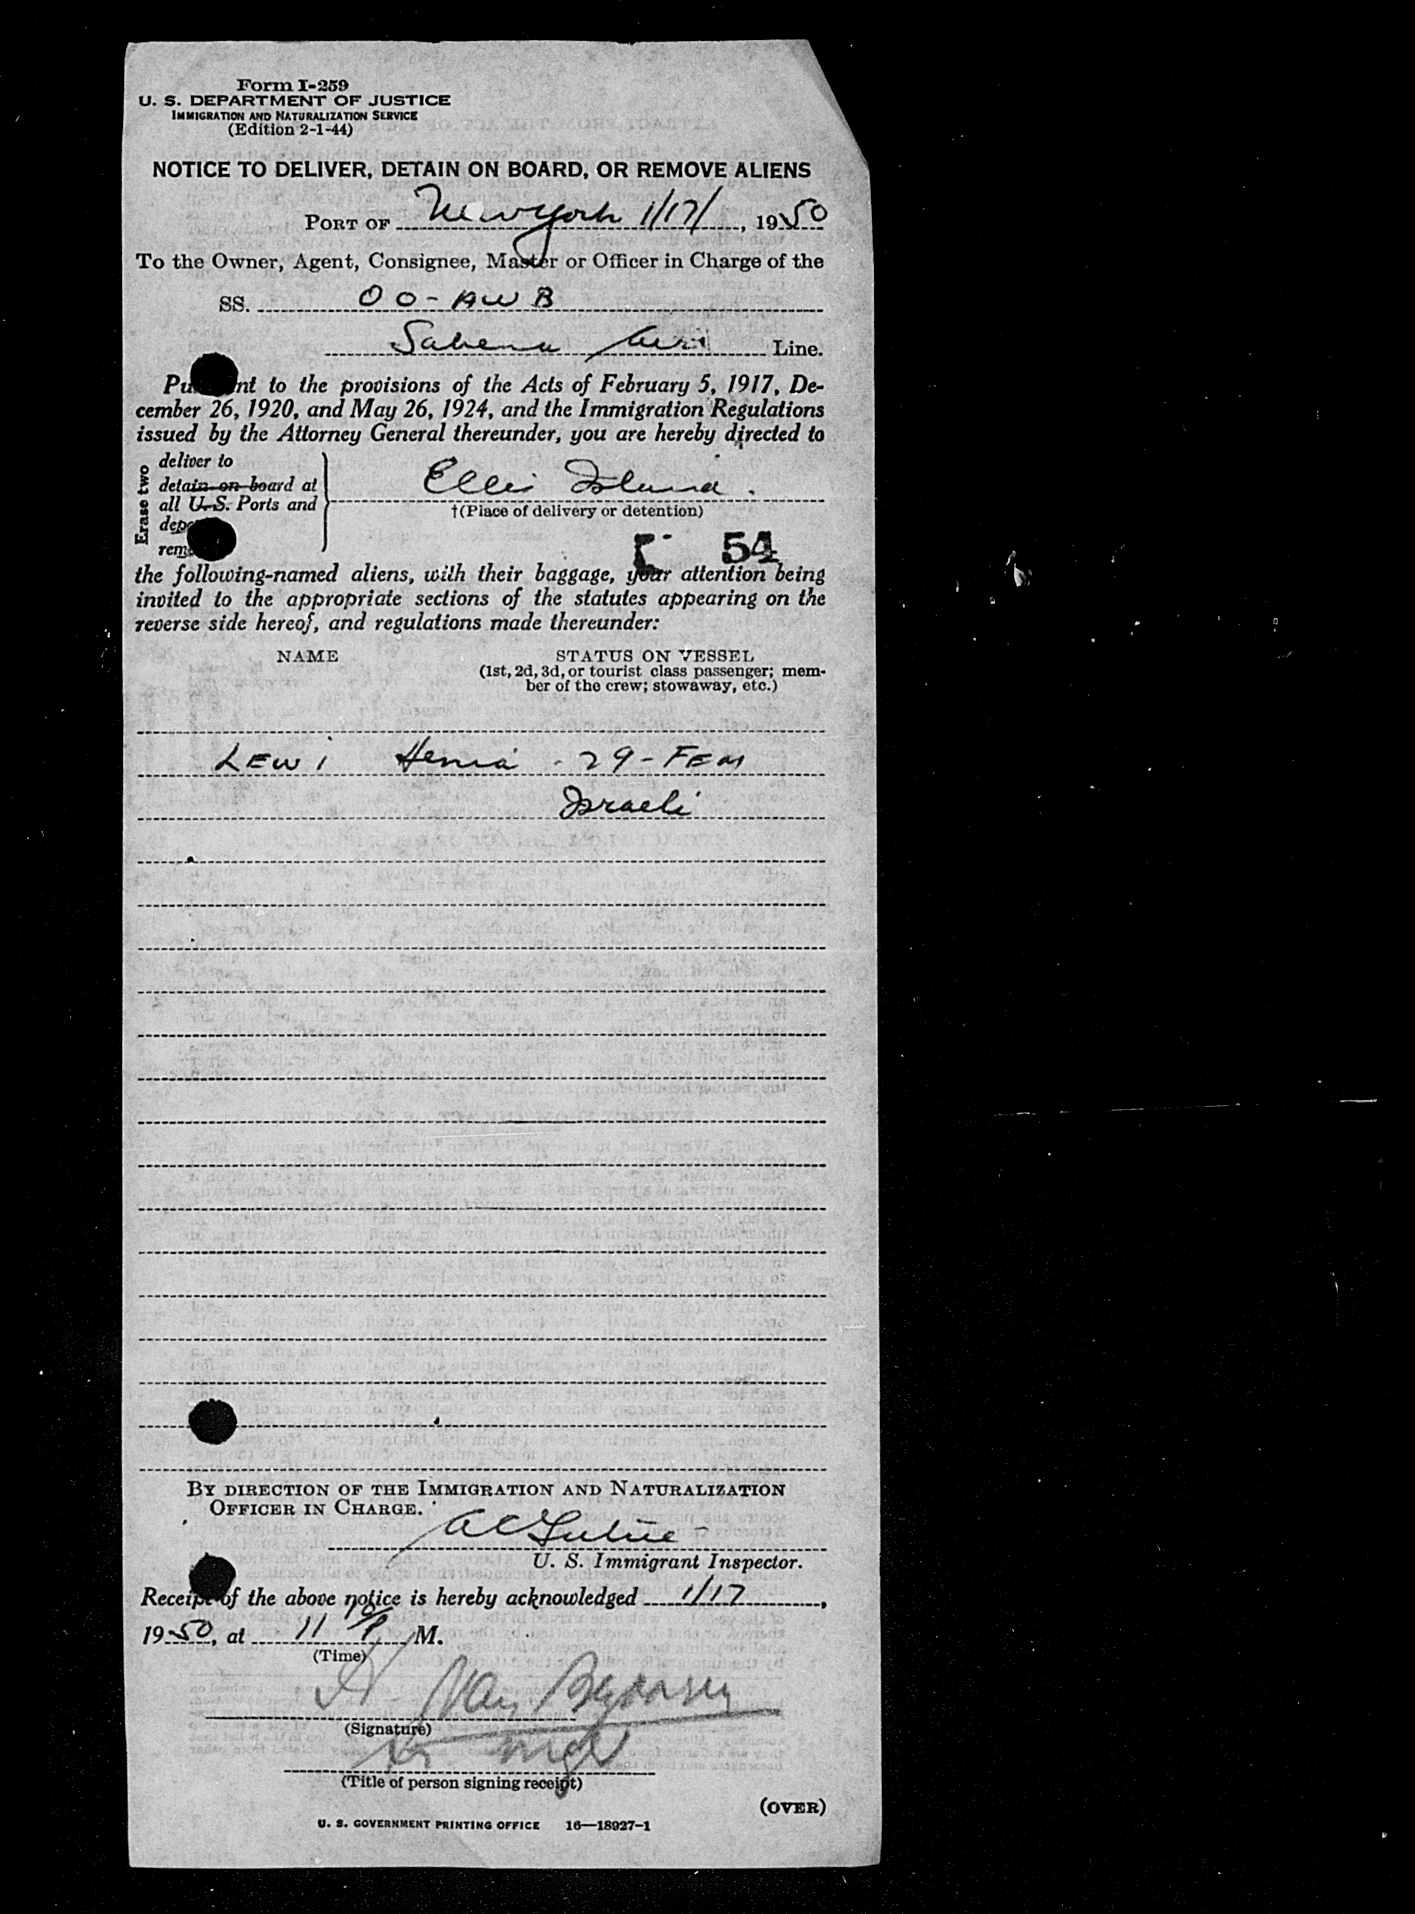 Form I-259
U. S. DEPARTMENT OF JUSTICE
IMMIGRATION AND NATURALIZATION SERVICE
(Edition 2-1-44)
NOTICE TO DELIVER, DETAIN ON BOARD, OR REMOVE ALIENS
PORT OF New York 1/17/, 1950
To the Owner, Agent, Consignee, Master or Officer in Charge of the
SS. OO-AWB
Sabena Air Line.
Pu nt to the provisions of the Acts of February 5, 1917, De-
cember 26, 1920, and May 26, 1924, and the Immigration Regulations
issued by the Attorney General thereunder, you are hereby directed to
Erase two
deliver to
detain on board at
all U.S. Ports and
dep
rem
Ellis Island.
†(Place of delivery or detention)
54
the following-named aliens, with their baggage, your attention being
invited to the appropriate sections of the statutes appearing on the
reverse side hereof, and regulations made thereunder:
NAME STATUS ON VESSEL
(1st, 2d, 3d, or tourist class passenger; mem-
ber of the crew; stowaway, etc.)
LEWI Henia - 29 - FEM
Israeli
BY DIRECTION OF THE IMMIGRATION AND NATURALIZATION
OFFICER IN CHARGE.
U. S. Immigrant Inspector.
Receipt of the above notice is hereby acknowledged 1/17,
1950, at 11 10/P M.
(Time)
(Signature)
(Title of person signing receipt)
(OVER)
U. S. GOVERNMENT PRINTING OFFICE 16—18927-1